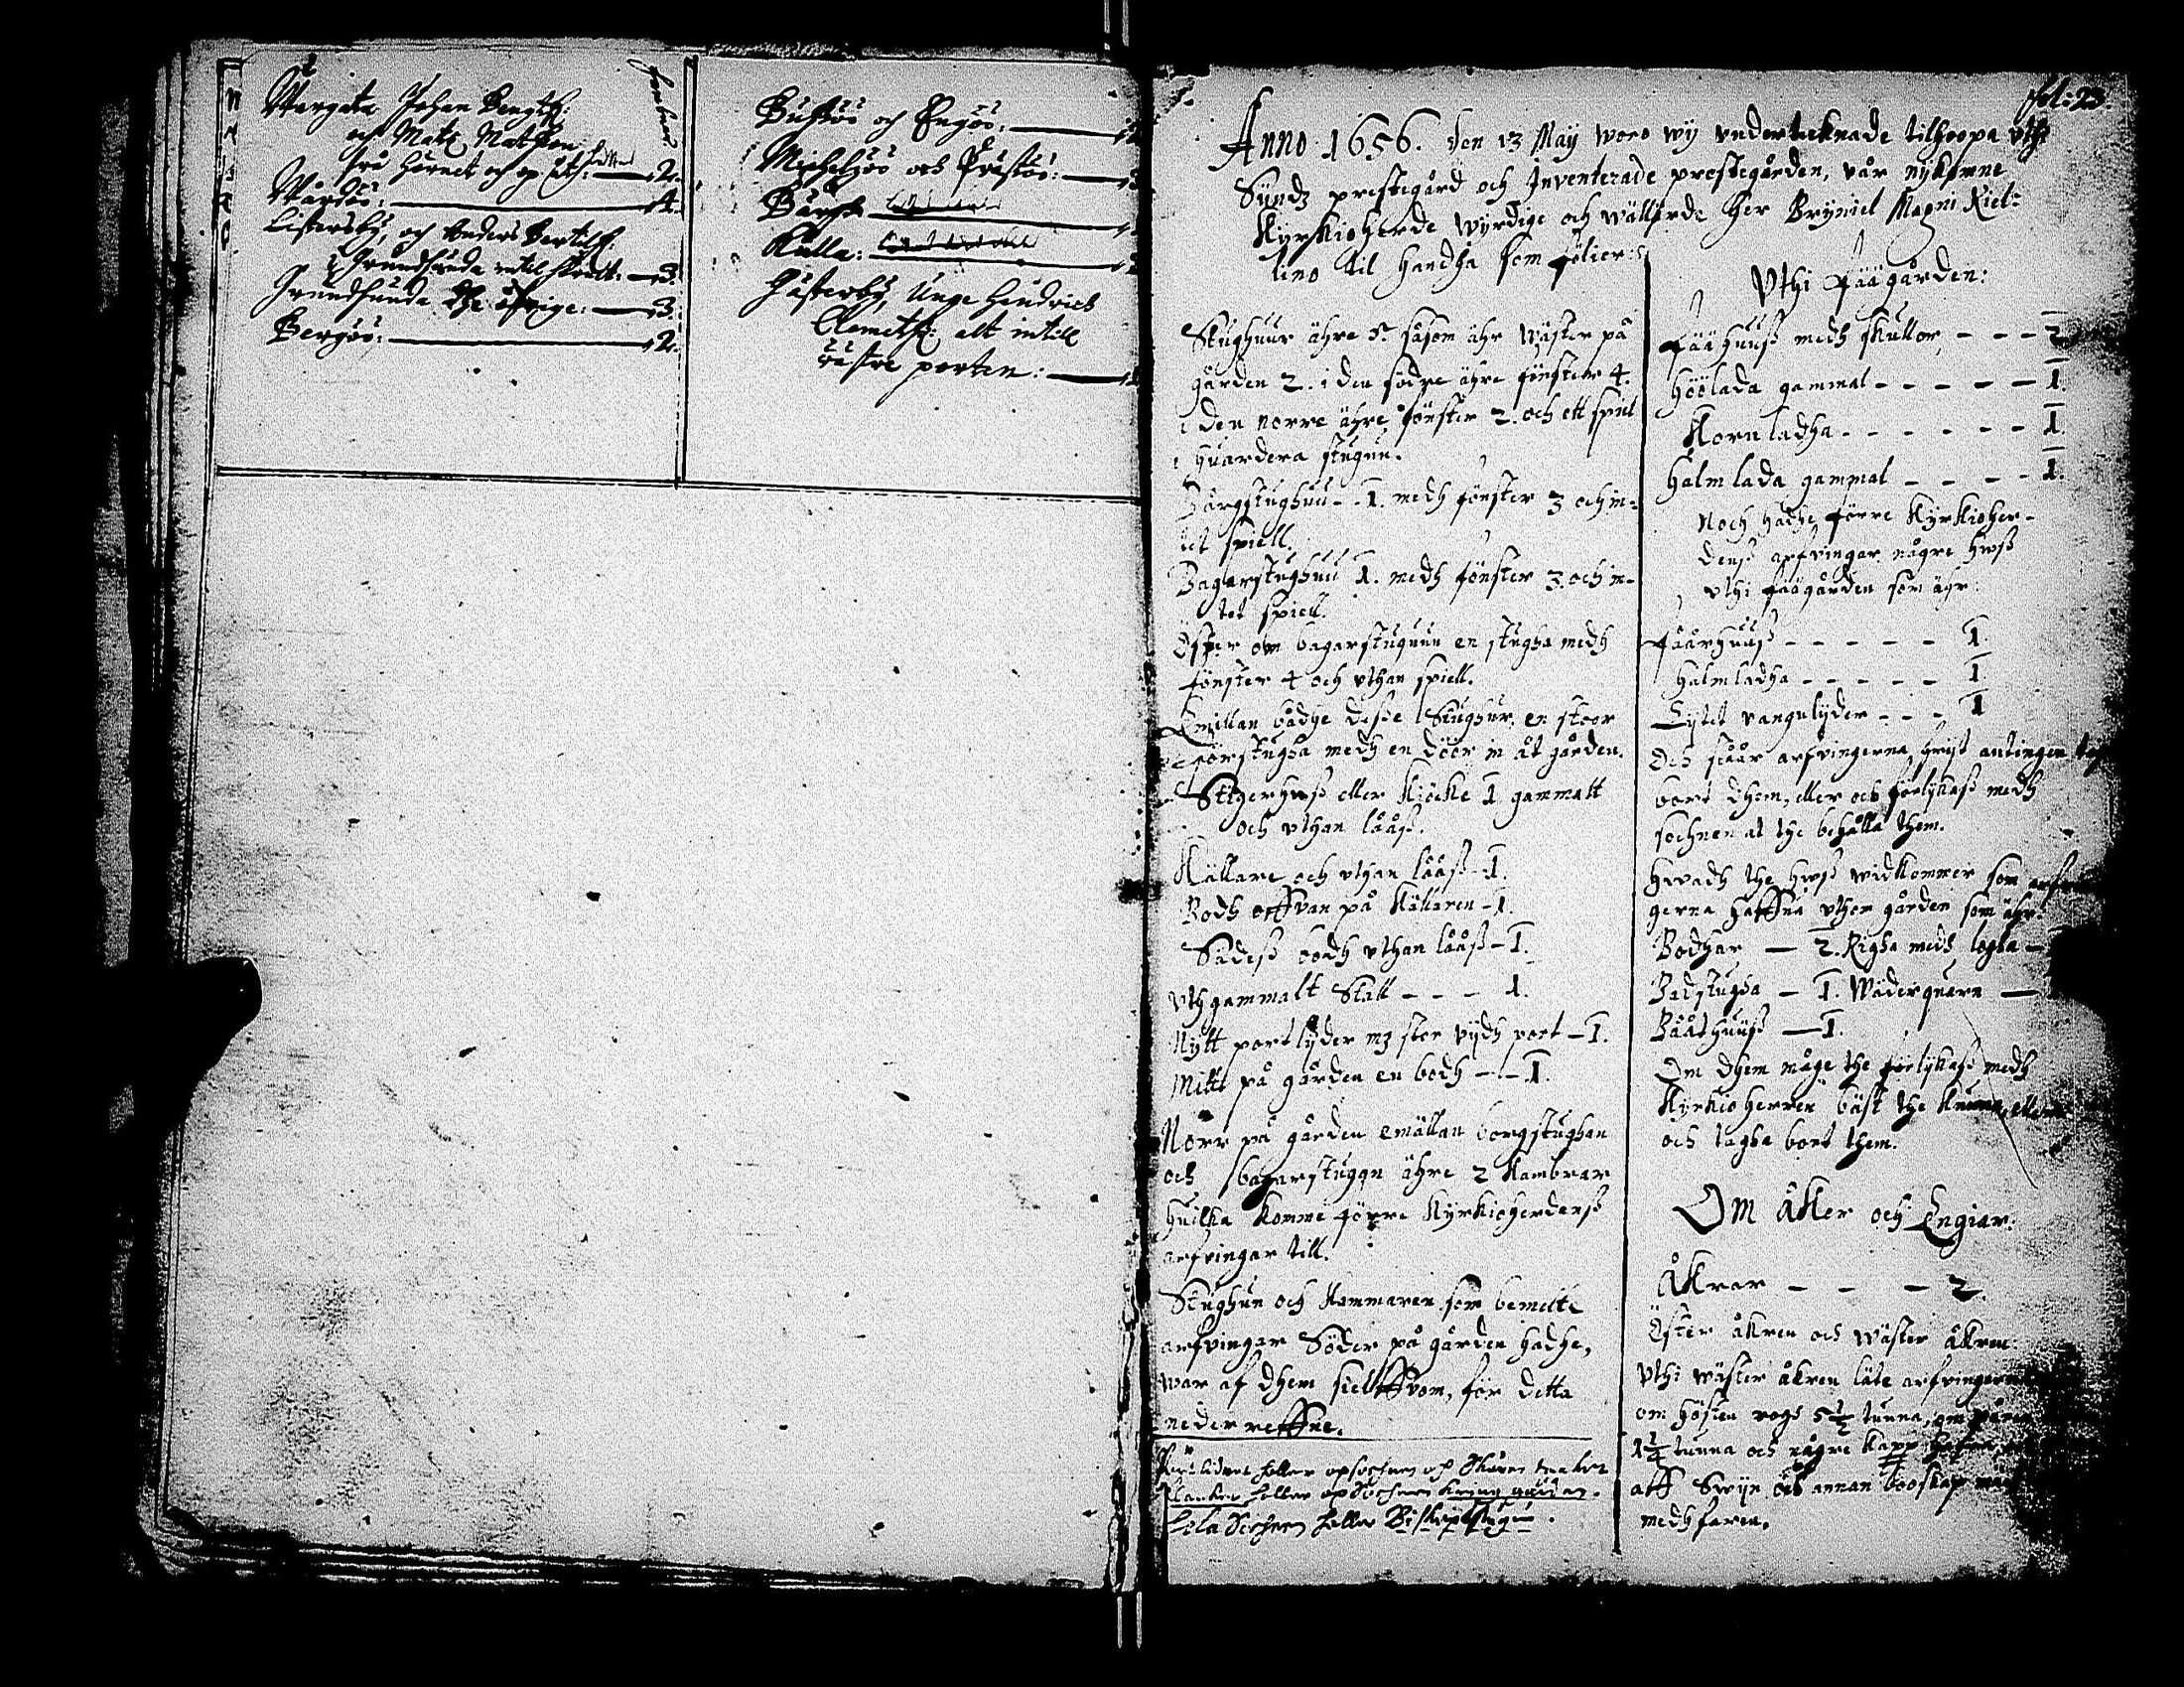 Wargata Johan Bengtß:
och Matz Matßon
frå hörnet och op åth: — 2.
Wårdöö: — 4.
Listersby, och Anders Bertilß:
i Grundsunda intil 3.
Grundsunda the öfrige: — 3.
Bergöö: — 2.
Bußöö och Engöö: —
Michelsöö och Prästöö: —
Bänsö
Kulla:
Hästerby, Unge Hendrich
Clemetß: alt intill
östre porten: —
fol: 23
Anno 1656. den 13 Maij woro wij undertecknade tilhoopa uthj
Sundz prestegård och Inventerade prestegården, vår nykomne
Kyrkioherde wyrdige och wällärde Her Bryniel Magni Kiel-
lino til handha som följer:
Stughuur ähre 5. såsom ähr Wäster på
gården 2. i den södre ähre fönster 4.
i den norre ähre fönster 2. och ett spiel
i huardera stugun.
Bårgstughuu - 1. medh fönster 3 och in-
tet spiell.
Bagarstughuu 1. medh fönster 3. och in-
tet spiell.
Öster om bagarstugunn en stugha medh
fönster 4 och uthan spiell.
Emillan bådhe desse Stughur en stoor
förstugha medh en döör in åt gården.
Stegerhws eller Kiöcke 1 gammalt
och uthan lååß.
Källare och uthan lååß - 1.
Bodh offvan på Källaren - 1.
Sädeß bodh uthan lååß - 1.
Uthgammalt Stall - - - 1.
Nytt portlyder mz stor vijdh port - 1.
Mitt på gården en bodh - - 1.
Norr på gården emällan borgstughan
och bagarstugan ähre 2 Kambrar
huilka komme förre Kyrkioherdenß
arfvingar till.
Stughun och Kammaren som bemelte
arfvingar Söder på gården hadhe,
war af dhem sielffvom, för detta
nederreffne.
håller opsochnen och
håller opsochnen kring gården.
hela Sochnen håller Biskopstugun.
Uthi Fäägården:
Fäähuuß medh skullor, - - - 2
Höölada gammal - - - - - 1.
Kornladha - - - - - - 1.
Halmlada gammal - - - - 1.
Noch hadhe förre Kyrkioher-
denß arfvingar någre hwß
uthi fäägården som ähr:
Fåårhuuß - - - - - 1.
Halmladha - - - - - 1
Lijtet vangnlyder - - - 1
Och ståår arfvingerna frijtt antingen
bort dhem, eller och förlijkaß medh
sochnen at the behålla them.
Hwadh the hwß widkommer som
gerna haffva uthom gården som ähr
Bodhar — 2. Righa medh logha —
Badstugha — 1. Wäderquarn —
Bååthuuß — 1.
Om dhem måge the förlijkaß medh
Kyrkioherren bäst the kunna, eller
och tagha bort them.
Om Åker och Engiar:
Åkrar - - - 2
Öster åkren och Wäster åkren:
Uthi wäster åkren låte arfvingerna
om hösten rogh 5½ tunna, om
1¼ tunna och någre kapp
aff Swijn och annan booskap
medhfaren.